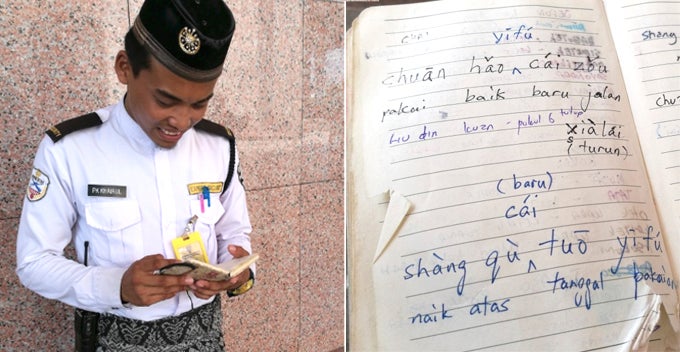 PK KHAIRUL
yīfú
chuān hǎo ^ cái zǒu
pakai baik baru jalan
Liu diǎn kuān - pukul 6 tutup
xiàlái
(turun)
(baru)
cái
shàng qù ^ tuō yīfú
naik atas tanggal pakaian
shàng